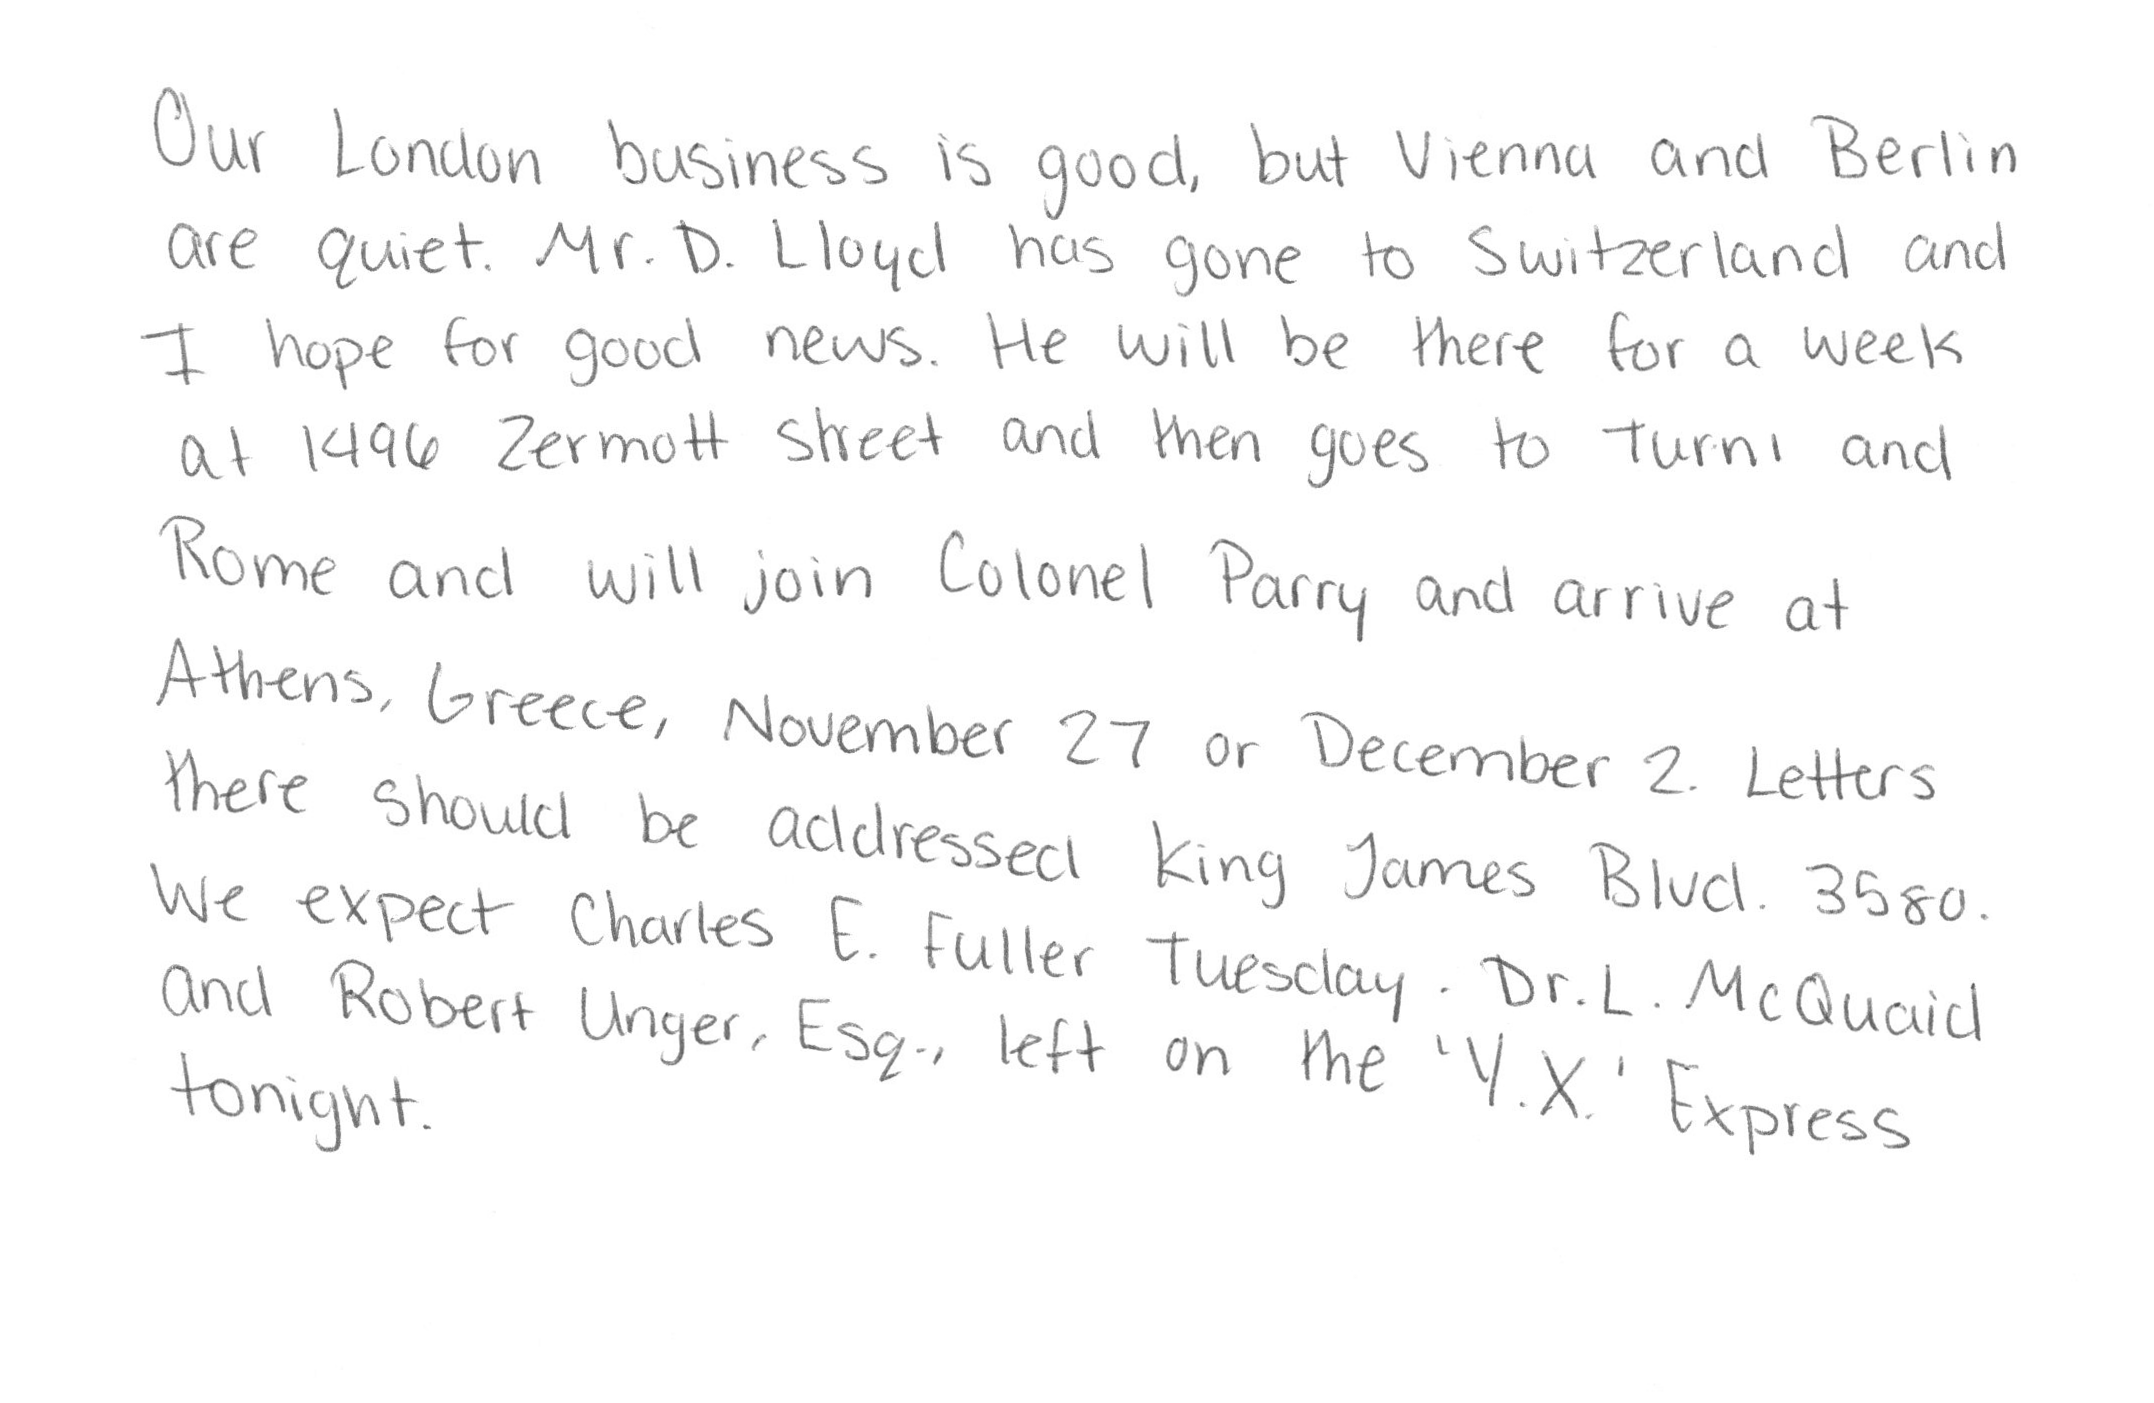 Our London business is good, but Vienna and Berlin
are quiet. Mr. D. Lloyd has gone to Switzerland and
I hope for good news. He will be there for a week
at 1496 Zermott street and then goes to Turni and
Rome and will join Colonel Parry and arrive at
Athens, Greece, November 27 or December 2. Letters
there should be addressed King James Blvd. 3580.
We expect Charles E. Fuller Tuesday. Dr. L. McQuaid
and Robert Unger, Esq., left on the 'Y.X.' Express
tonight.